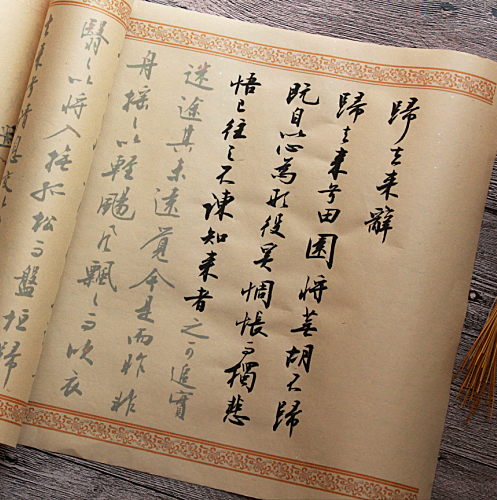 歸去来辭
歸去来兮田園將蕪胡不歸
既自以心為形役奚惆悵而獨悲
悟已往之不諫知来者之可追實
迷途其未遠覺今是而昨非
舟摇々以輕颺風飄々而吹衣
翳々以将入撫孤松而盤桓歸
去来兮請息